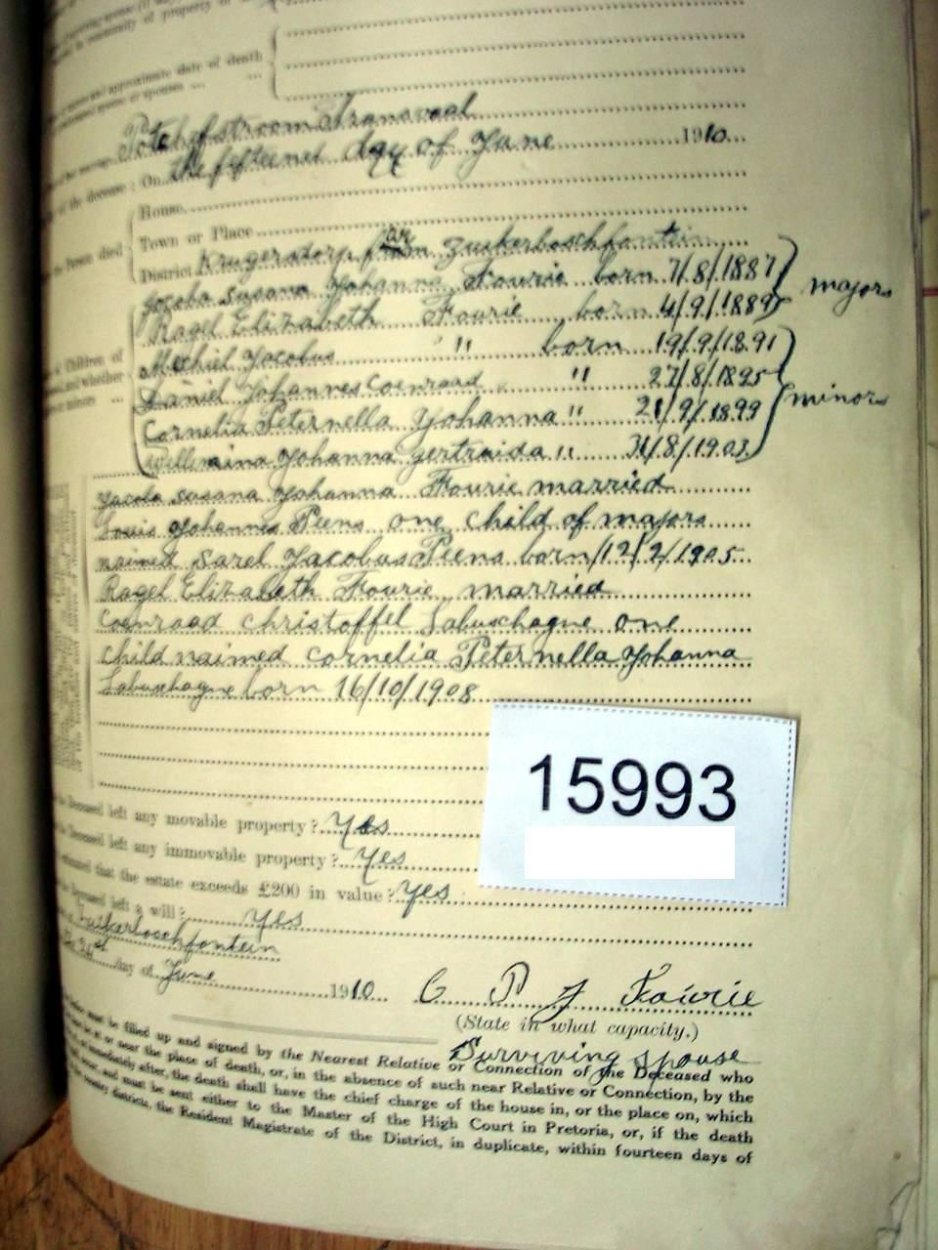 and approximate date of death
Potchefstroom Transvaal
of the decease: On the fifteenet day of Jane 1910
House
Town or Place
District Krugersdorp farm Zuikerboschfontein
Jacoba Susana Johanna Fourie born 7/8/1887 } majors
Ragel Elizabeth Fourie born 4/9/1889
Mechiel Jacobus " born 19/9/1891
Daniel Johannes Coenraad " 27/8/1895 } minors
Cornelia Peternella Johanna " 21/9/1899
Willemina Johanna Gertraida " 31/8/1903
Jacoba Susana Johanna Fourie married
Louis Johannes Peens one child of majors
naimed Sarel Jacobus Peens born 12/2/1905
Ragel Elizabeth Fourie married
Coenraad Christoffel Labuschagne one
child naimed Cornelia Peternella Johanna
Labuschagne born 16/10/1908
15993
Deceased left any movable property? Yes
Deceased left any immovable property? Yes
estimated that the estate exceeds £200 in value? Yes
Deceased left a will? Yes
Zuikerboschfontein
day of June 1910 C P J Fourie
(State in what capacity.)
Surviving spouse
must be filled up and signed by the Nearest Relative or Connection of the Deceased who
at or near the place of death, or, in the absence of such near Relative or Connection, by the
immediately after, the death shall have the chief charge of the house in, or the place on, which
and must be sent either to the Master of the High Court in Pretoria, or, if the death
districts, the Resident Magistrate of the District, in duplicate, within fourteen days of